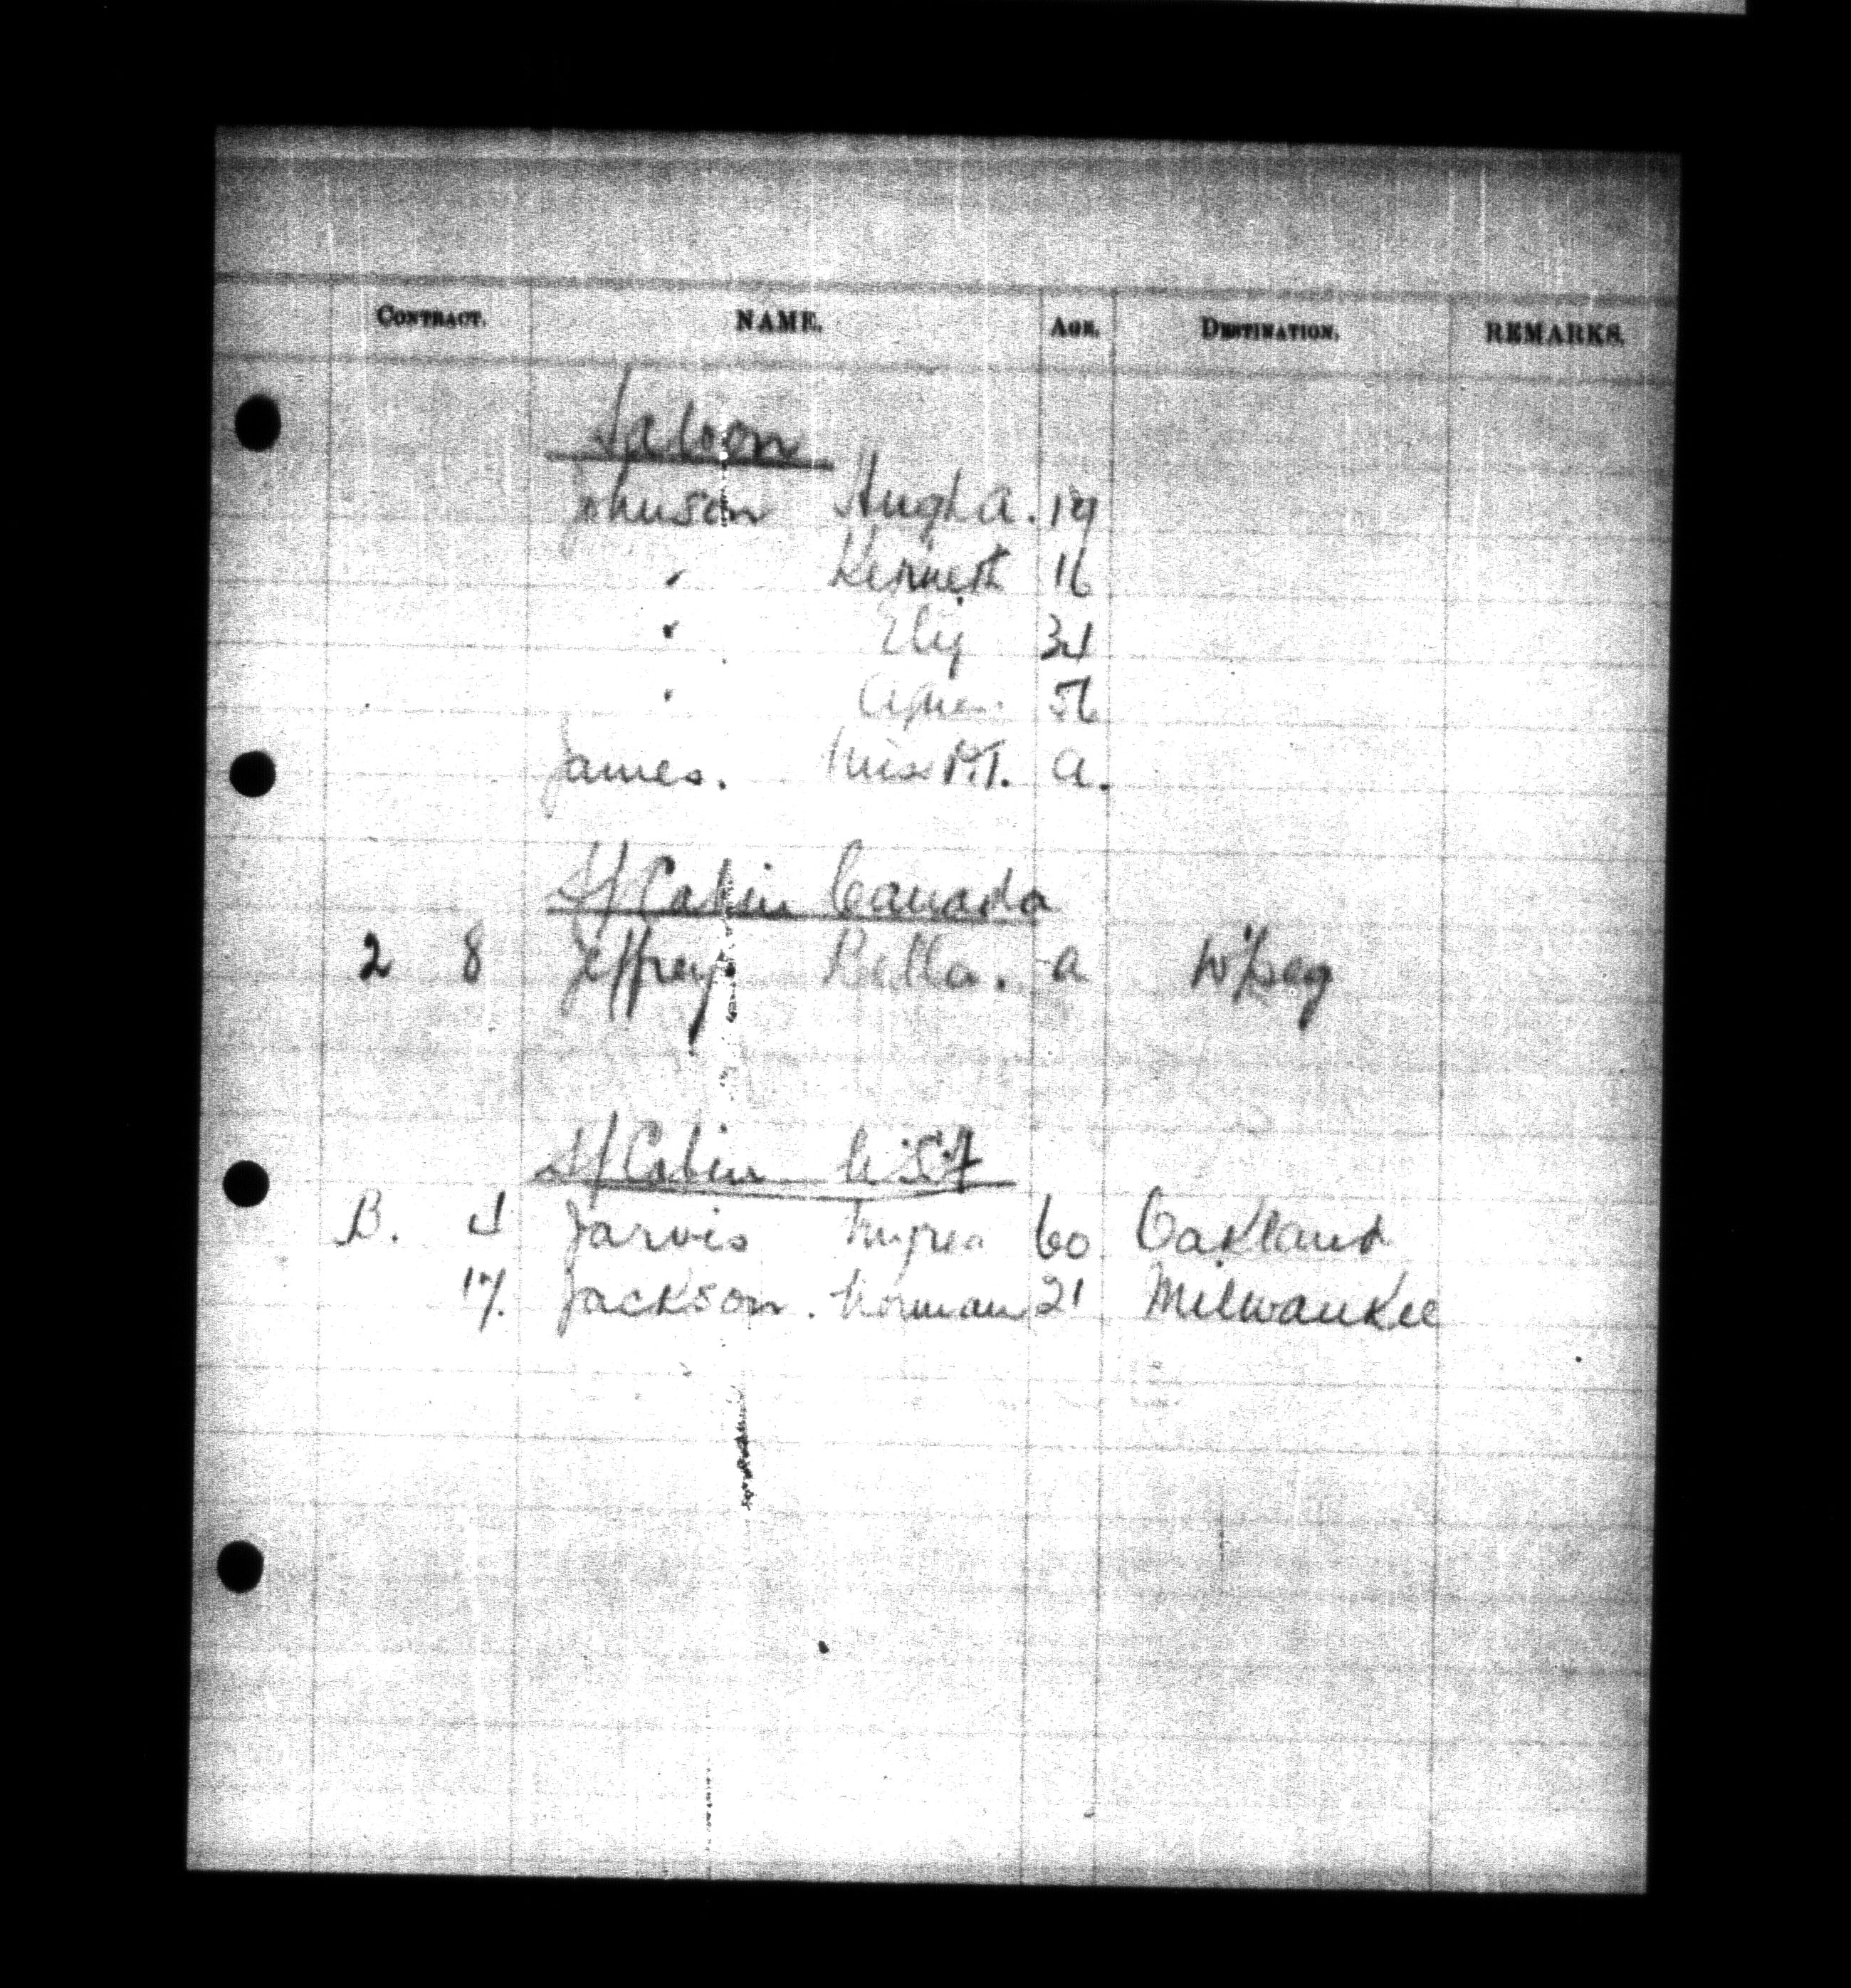 CONTRACT. NAME. AGE. DESTINATION. REMARKS.
Saloon
Johnson Hugh A. 19
" Kenneth 16
" Eliz 34
" Agnes 56
James. Miss M.T. a.
2/ Cabin Canada
2 8 Jeffrey Retta. a W'peg
2/ Cabin U.S.A
B. 4 Jarvis 60 Oakland
17. Jackson. Norman 21 Milwaukee